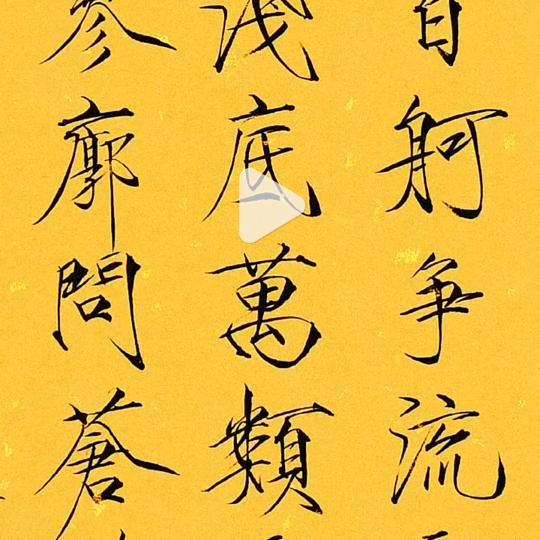 百舸爭流
淺底萬類
寥廓問蒼